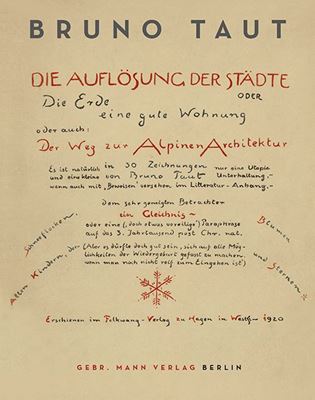 BRUNO TAUT
DIE AUFLÖSUNG DER STÄDTE
ODER
Die Erde
eine gute Wohnung
oder auch:
Der Weg zur Alpinen Architektur
Es ist natürlich in 30 Zeichnungen nur eine Utopie
und eine kleine von Bruno Taut Unterhaltung,-
wenn auch mit „Beweisen" versehen im Litteratur-Anhang.-
dem sehr geneigten Betrachter
ein Gleichnis~
oder eine (,doch etwas voreilige') Paraphrase
auf das 3. Jahrtausend post Chr. nat.
(Aber es dürfte doch gut sein, sich auf alle Mög-
lichkeiten der Wiedergeburt gefasst zu machen.
wenn man noch nicht reif zum Eingehen ist)
Allen Kindern, den
Schneeflocken,
Blumen
und Sternen
Erschienen im Folkwang-Verlag zu Hagen in Westf~ 1920
GEBR. MANN VERLAG BERLIN